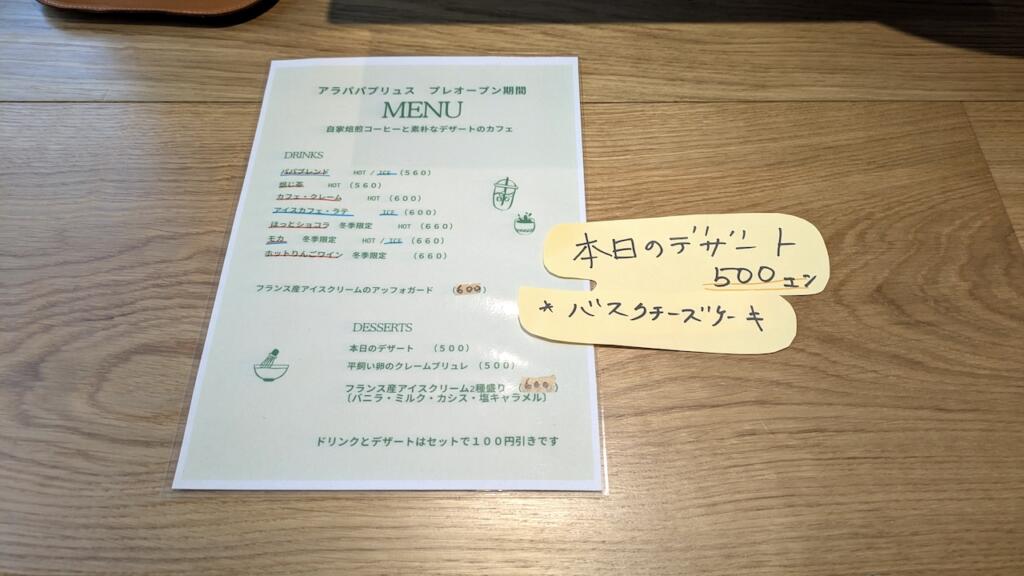 アラパパブリュス　プレオープン期間
MENU
自家焙煎コーヒーと素朴なデザートのカフェ
DRINKS
パパブレンド　HOT / ICE (５６０)
HOT (５６０)
カフェ・クレーム　HOT (６００)
アイスカフェ・ラテ　ICE (６００)
ほっとショコラ　冬季限定　HOT (６６０)
モカ　冬季限定　HOT / ICE (６６０)
ホットりんごワイン　冬季限定　(６６０)
フランス産アイスクリームのアッフォガード　(600)
DESSERTS
本日のデザート　(５００)
平飼い卵のクレームブリュレ　(５００)
フランス産アイスクリーム2種盛り　(600)
（バニラ・ミルク・カシス・塩キャラメル）
ドリンクとデザートはセットで１００円引きです
本日のデザート
500エン
* バスクチーズケーキ